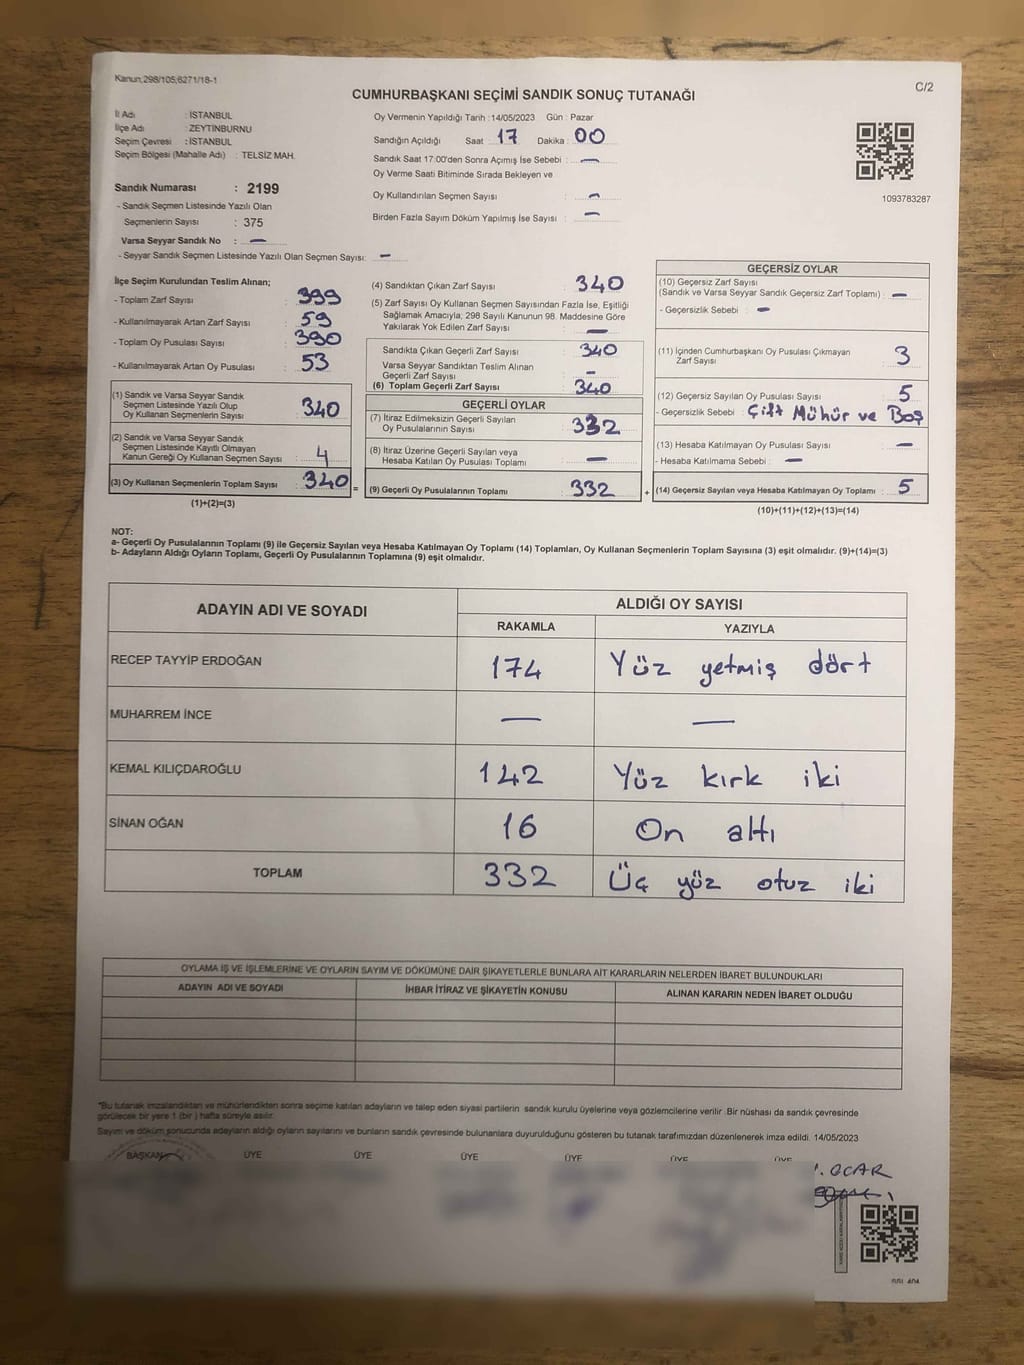 Kanun;298/105;6271/18-1
C/2
CUMHURBAŞKANI SEÇİMİ SANDIK SONUÇ TUTANAĞI
İl Adı : İSTANBUL
İlçe Adı : ZEYTİNBURNU
Seçim Çevresi : İSTANBUL
Seçim Bölgesi (Mahalle Adı) : TELSİZ MAH.
Sandık Numarası : 2199
- Sandık Seçmen Listesinde Yazılı Olan
Seçmenlerin Sayısı : 375
Varsa Seyyar Sandık No : —
- Seyyar Sandık Seçmen Listesinde Yazılı Olan Seçmen Sayısı: —
Oy Vermenin Yapıldığı Tarih :14/05/2023 Gün : Pazar
Sandığın Açıldığı Saat 17 Dakika : 00
Sandık Saat 17:00'den Sonra Açımış İse Sebebi : —
Oy Verme Saati Bitiminde Sırada Bekleyen ve
Oy Kullandırılan Seçmen Sayısı : —
Birden Fazla Sayım Döküm Yapılmış İse Sayısı : —
1093783287
İlçe Seçim Kurulundan Teslim Alınan;
- Toplam Zarf Sayısı : 399
- Kullanılmayarak Artan Zarf Sayısı : 59
- Toplam Oy Pusulası Sayısı : 390
- Kullanılmayarak Artan Oy Pusulası : 53
(1) Sandık ve Varsa Seyyar Sandık
Seçmen Listesinde Yazılı Olup
Oy Kullanan Seçmenlerin Sayısı : 340
(2) Sandık ve Varsa Seyyar Sandık
Seçmen Listesinde Kayıtlı Olmayan
Kanun Gereği Oy Kullanan Seçmen Sayısı : 4
(3) Oy Kullanan Seçmenlerin Toplam Sayısı : 340
(1)+(2)=(3)
=
(4) Sandıktan Çıkan Zarf Sayısı : 340
(5) Zarf Sayısı Oy Kullanan Seçmen Sayısından Fazla İse, Eşitliği
Sağlamak Amacıyla; 298 Sayılı Kanunun 98. Maddesine Göre
Yakılarak Yok Edilen Zarf Sayısı : —
Sandıkta Çıkan Geçerli Zarf Sayısı : 340
Varsa Seyyar Sandıktan Teslim Alınan
Geçerli Zarf Sayısı : -
(6) Toplam Geçerli Zarf Sayısı : 340
GEÇERLİ OYLAR
(7) İtiraz Edilmeksizin Geçerli Sayılan
Oy Pusulalarının Sayısı : 332
(8) İtiraz Üzerine Geçerli Sayılan veya
Hesaba Katılan Oy Pusulası Toplamı : —
(9) Geçerli Oy Pusulalarının Toplamı : 332
+
GEÇERSİZ OYLAR
(10) Geçersiz Zarf Sayısı
(Sandık ve Varsa Seyyar Sandık Geçersiz Zarf Toplamı) : —
- Geçersizlik Sebebi : —
(11) İçinden Cumhurbaşkanı Oy Pusulası Çıkmayan
Zarf Sayısı : 3
(12) Geçersiz Sayılan Oy Pusulası Sayısı : 5
- Geçersizlik Sebebi : Çift Mühür ve Boş
(13) Hesaba Katılmayan Oy Pusulası Sayısı : —
- Hesaba Katılmama Sebebi : —
(14) Geçersiz Sayılan veya Hesaba Katılmayan Oy Toplamı : 5
(10)+(11)+(12)+(13)=(14)
NOT:
a- Geçerli Oy Pusulalarının Toplamı (9) ile Geçersiz Sayılan veya Hesaba Katılmayan Oy Toplamı (14) Toplamları, Oy Kullanan Seçmenlerin Toplam Sayısına (3) eşit olmalıdır. (9)+(14)=(3)
b- Adayların Aldığı Oyların Toplamı, Geçerli Oy Pusulalarının Toplamına (9) eşit olmalıdır.
ADAYIN ADI VE SOYADI ALDIĞI OY SAYISI
RAKAMLA YAZIYLA
RECEP TAYYİP ERDOĞAN 174 Yüz yetmiş dört
MUHARREM İNCE — —
KEMAL KILIÇDAROĞLU 142 Yüz kırk iki
SİNAN OĞAN 16 On altı
TOPLAM 332 Üç yüz otuz iki
OYLAMA İŞ VE İŞLEMLERİNE VE OYLARIN SAYIM VE DÖKÜMÜNE DAİR ŞİKAYETLERLE BUNLARA AİT KARARLARIN NELERDEN İBARET BULUNDUKLARI
ADAYIN ADI VE SOYADI İHBAR İTİRAZ VE ŞİKAYETİN KONUSU ALINAN KARARIN NEDEN İBARET OLDUĞU
*Bu tutanak imzalandıktan ve mühürlendikten sonra seçime katılan adayların ve talep eden siyasi partilerin sandık kurulu üyelerine veya gözlemcilerine verilir. Bir nüshası da sandık çevresinde
görülecek bir yere 1 (bir ) hafta süreyle asılır.
Sayım ve döküm sonucunda adayların aldığı oyların sayılarını ve bunların sandık çevresinde bulunanlara duyurulduğunu gösteren bu tutanak tarafımızdan düzenlenerek imza edildi. 14/05/2023
BAŞKAN ÜYE ÜYE ÜYE ÜYE ÜYE ÜYE
OCAR